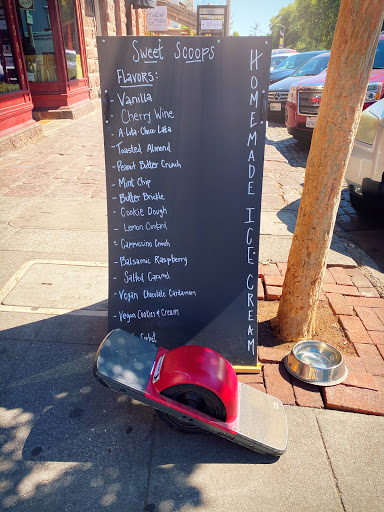 Sweet Scoops
Flavors:
- Vanilla
- Cherry Wine
- A-Lota-Choco-Lata
- Toasted Almond
- Peanut Butter Crunch
- Mint Chip
- Butter Brickle
- Cookie Dough
- Lemon Custard
- Cappuccino Crunch
- Balsamic Raspberry
- Salted Caramel
- Vegan Chocolate Cardamom
- Vegan Cookies & Cream
HOMEMADE ICE CREAM